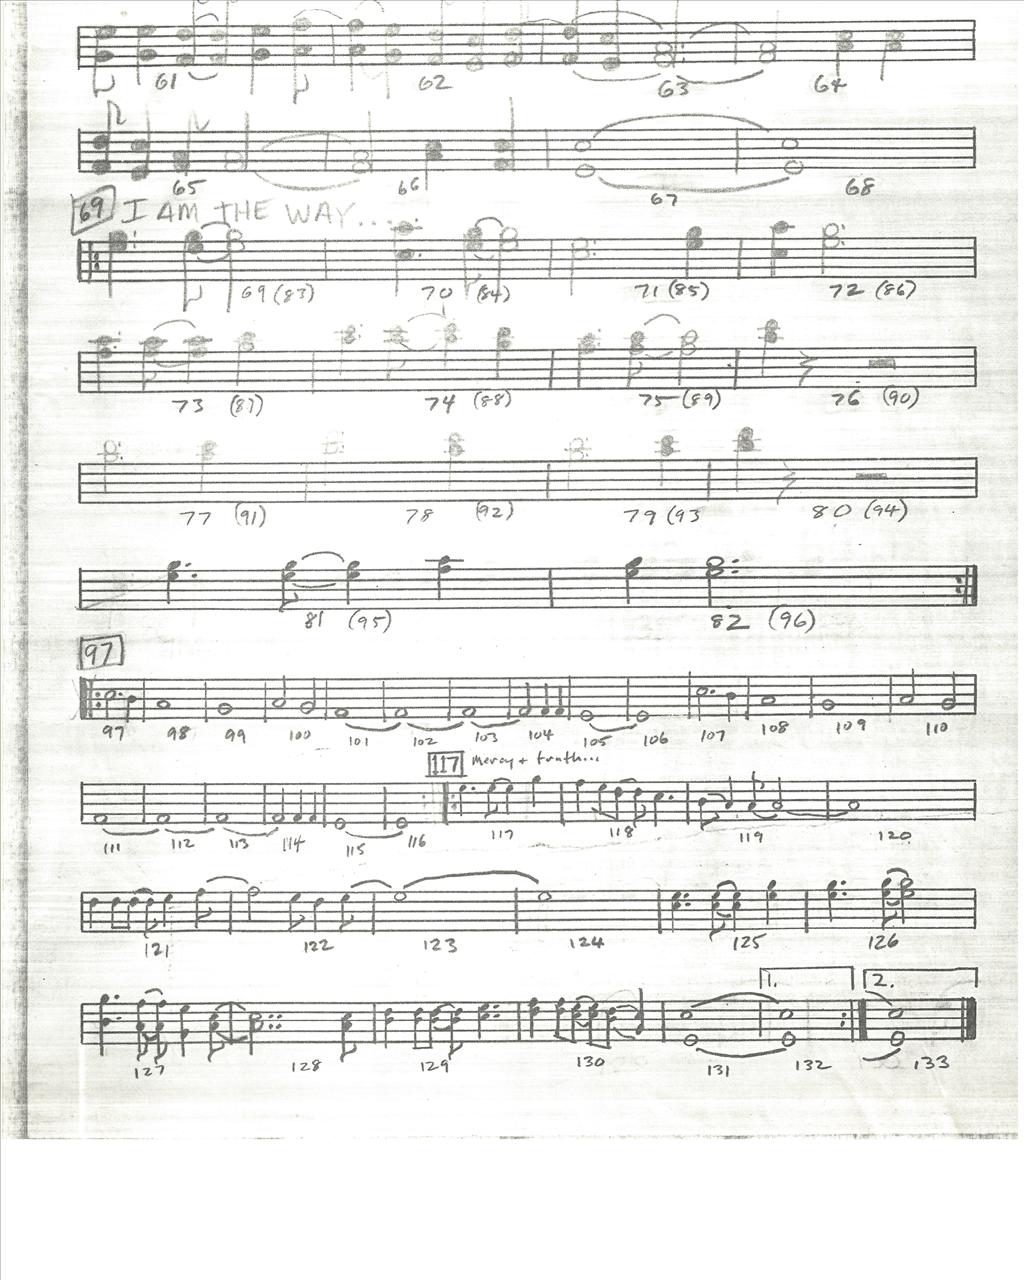 61 62 63 64
65 66 67 68
69 I AM THE WAY...
69 (83) 70 (84) 71 (85) 72 (86)
73 (87) 74 (88) 75 (89) 76 (90)
77 (91) 78 (92) 79 (93 80 (94)
81 (95) 82 (96)
97
97 98 99 100 101 102 103 104 105 106 107 108 109 110
117 mercy + truth...
111 112 113 114 115 116 117 118 119 120
121 122 123 124 125 126
1. 2.
127 128 129 130 131 132 133